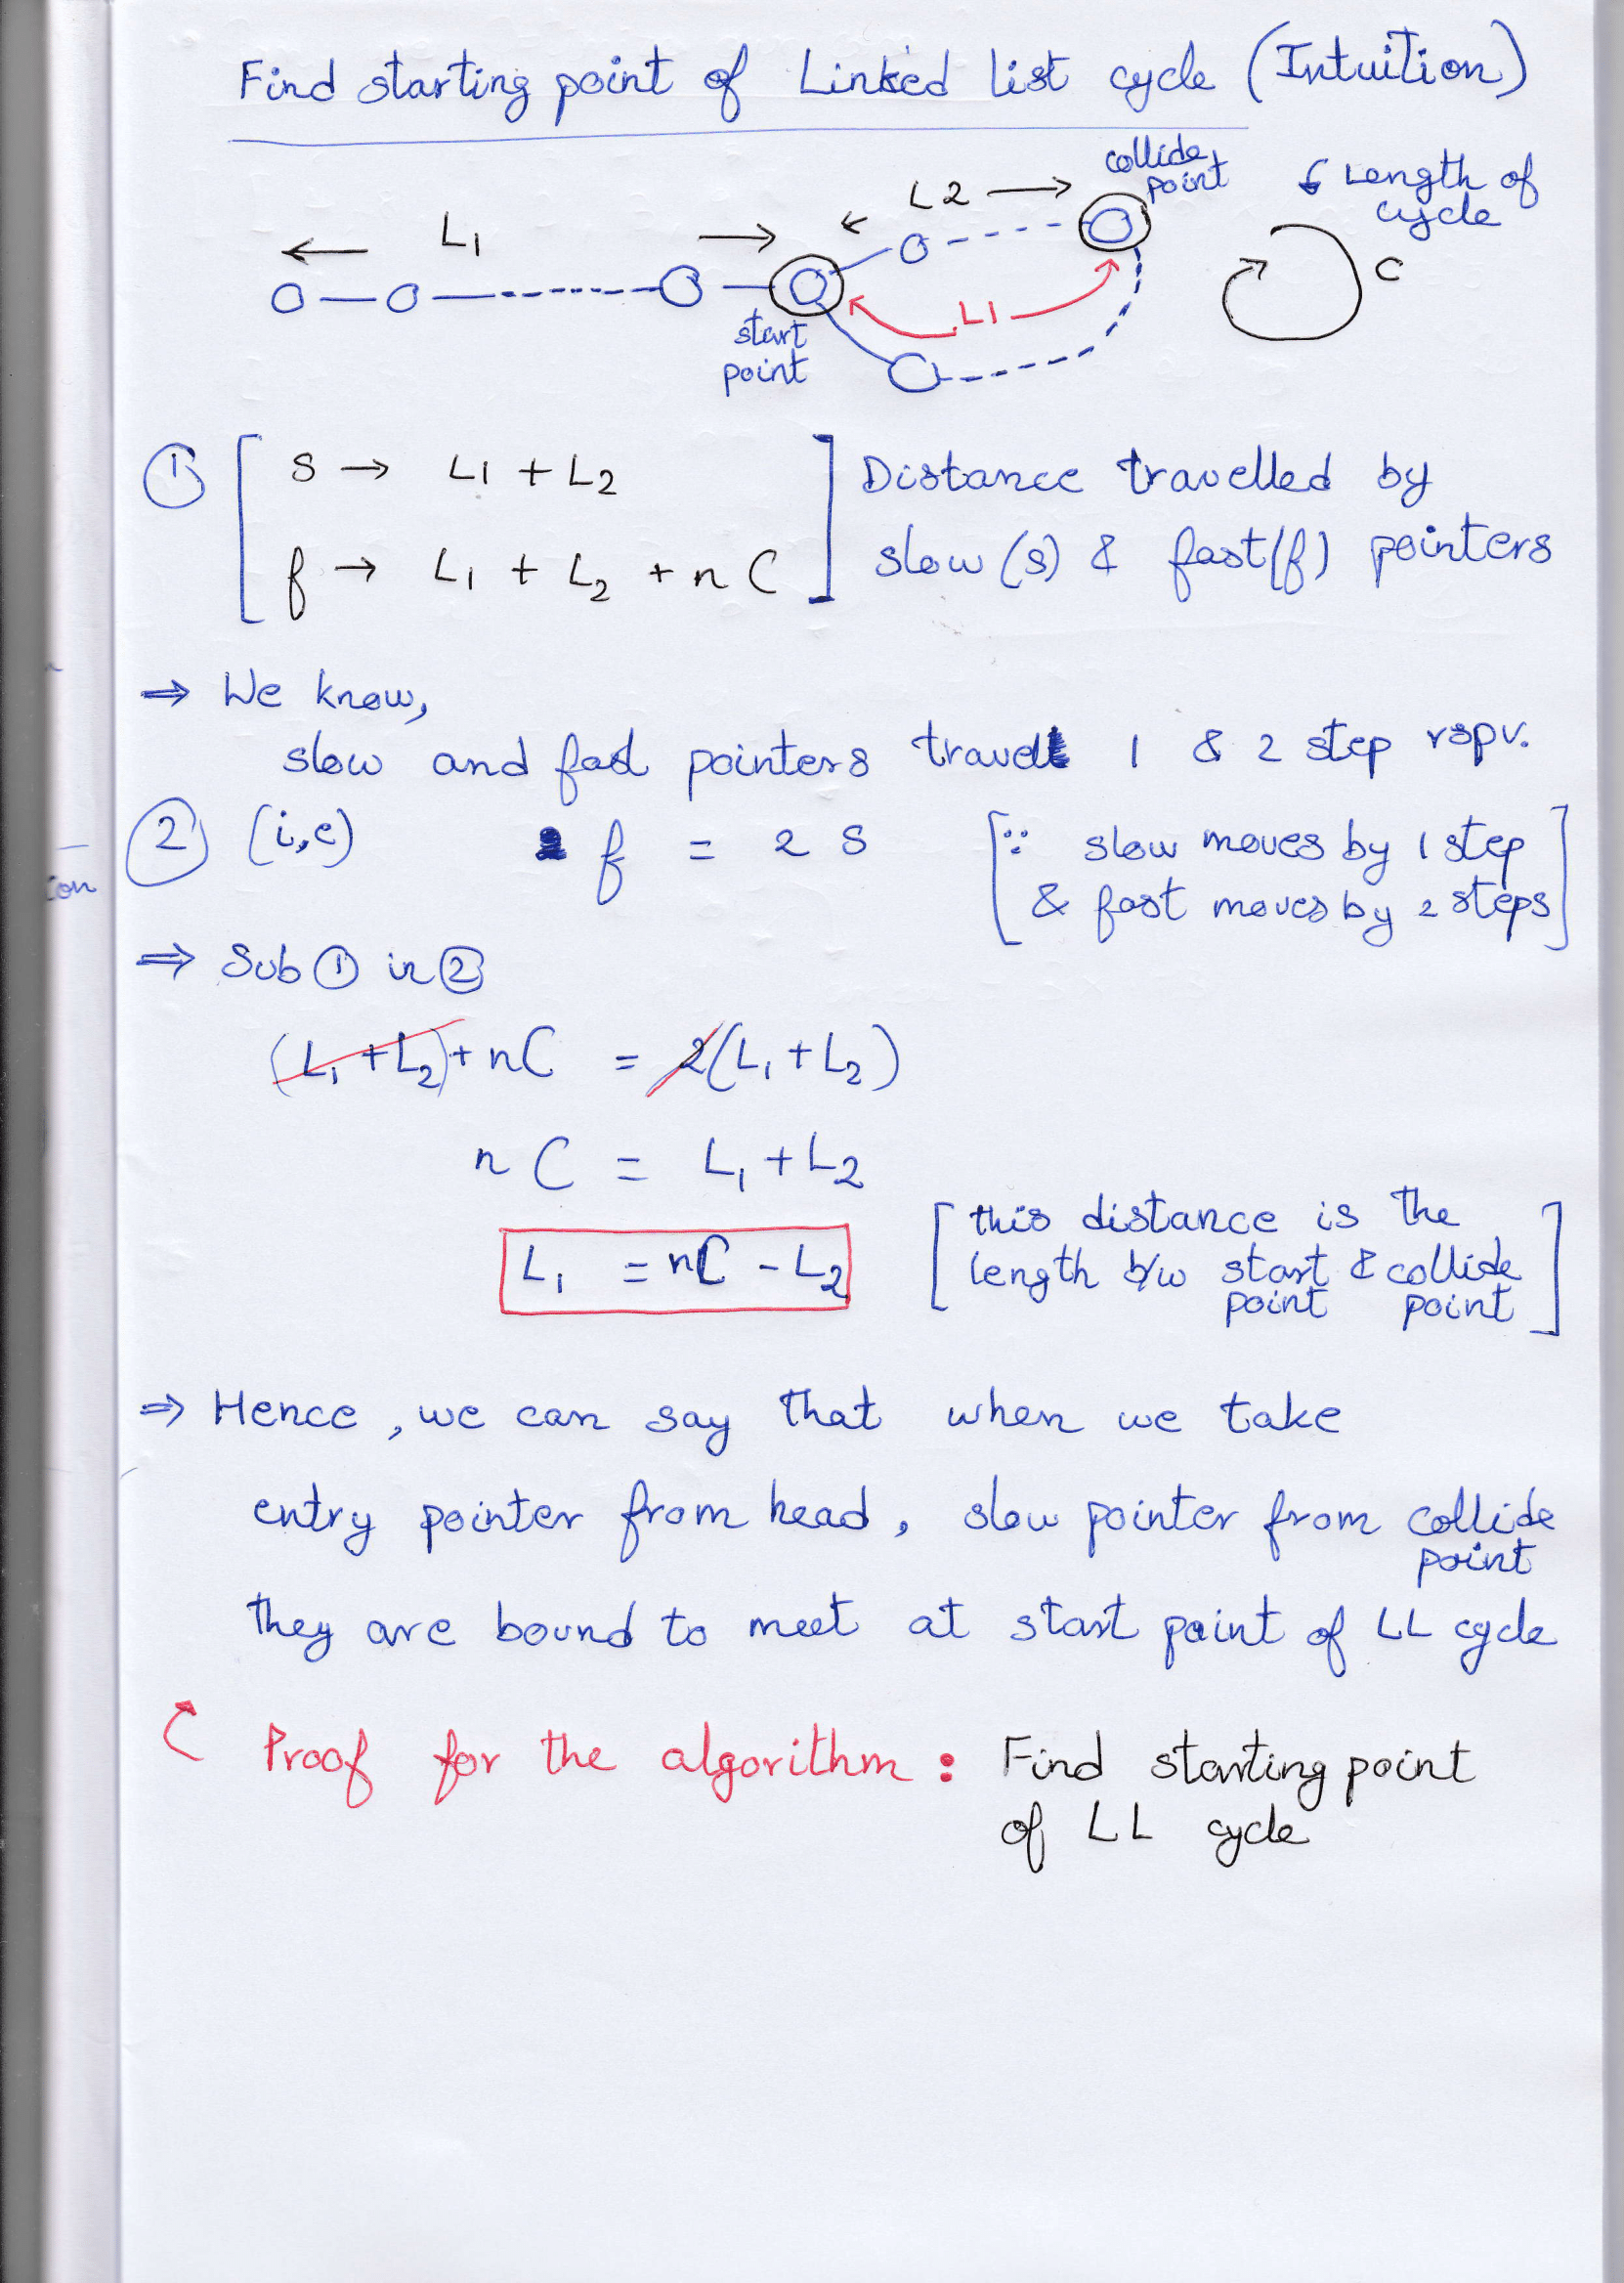 Find starting point of Linked list cycle (Intuition)
collide point
L2
Length of cycle
L1
C
L1
start point
① s → L1 + L2
f → L1 + L2 + nC
Distance travelled by
slow (s) & fast (f) pointers
⇒ We know,
slow and fast pointers travel 1 & 2 step rspv.
② (i,e) f = 2 s [∵ slow moves by 1 step
& fast moves by 2 steps]
⇒ Sub ① in ②
(L1 + L2) + nC = 2(L1 + L2)
nC = L1 + L2
L1 = nC - L2
[this distance is the
length b/w start & collide
point point]
⇒ Hence, we can say that when we take
entry pointer from head, slow pointer from collide
point
they are bound to meet at start point of LL cycle
Proof for the algorithm : Find starting point
of LL cycle